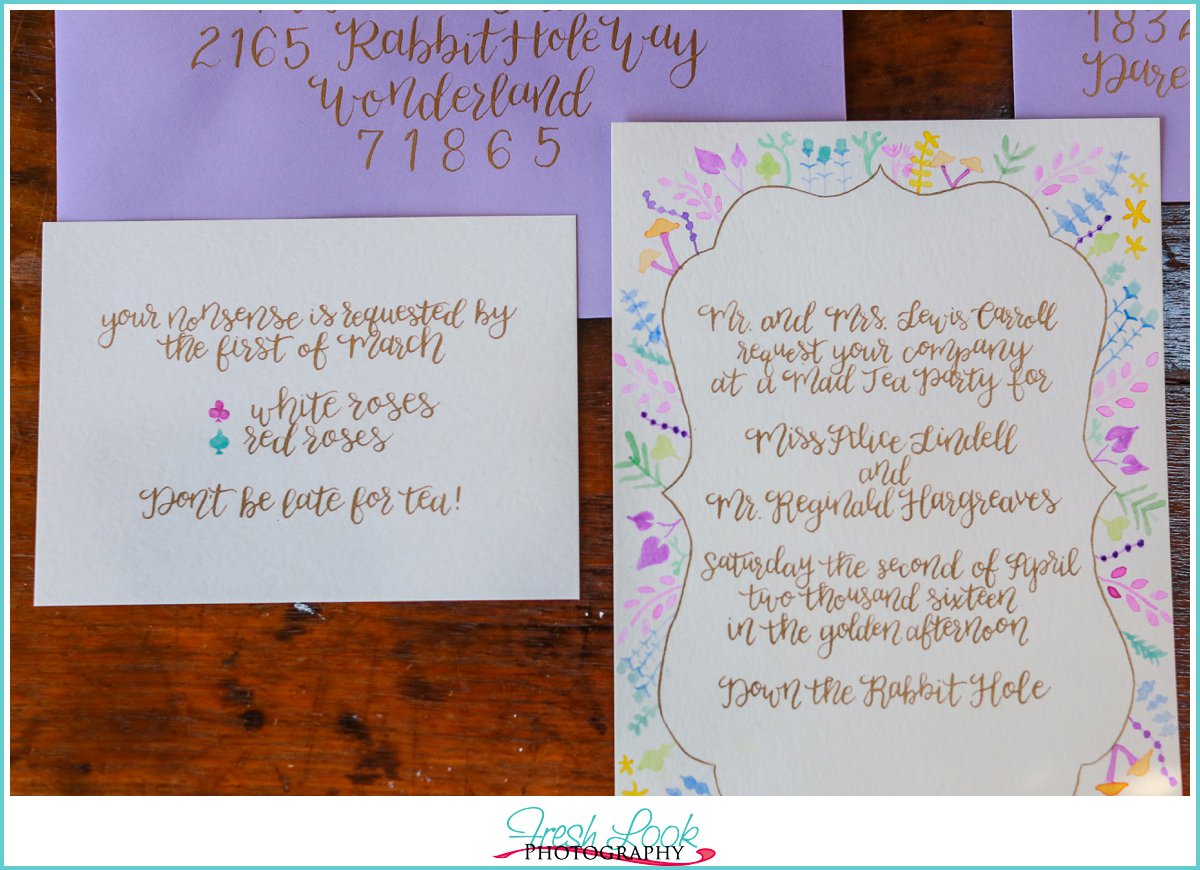 2165 Rabbit Hole Way
Wonderland
71865
1832
Dare
your nonsense is requested by
the first of March
white roses
red roses
Don't be late for tea!
Mr. and Mrs. Lewis Carroll
request your company
at a Mad Tea Party for
Miss Alice Lindell
and
Mr. Reginald Hargreaves
Saturday the second of April
two thousand sixteen
in the golden afternoon
Down the Rabbit Hole
Fresh Look
PHOTOGRAPHY